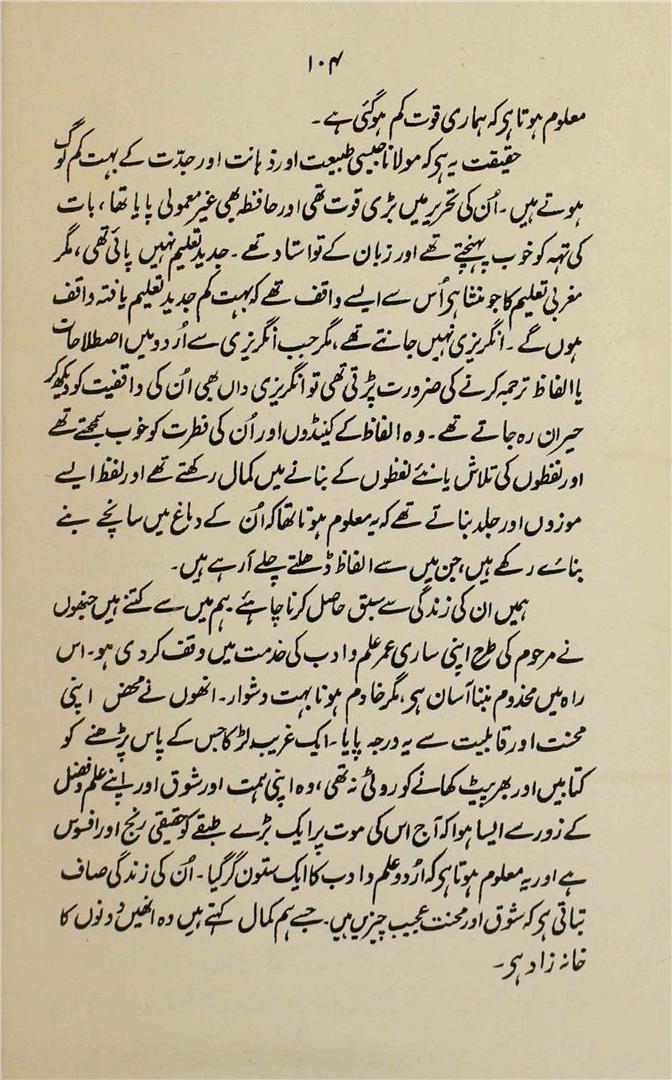 ۱۰۴
معلوم ہوتا ہر کہ ہماری قوت کم ہوگئی ہے۔
حقیقت یہ ہر کہ مولانا جیسی طبیعت اور ذہانت اور جدّت کے بہت کم لوگ
ہوتے ہیں۔ اُن کی تحریر میں بڑی قوت تھی اور حافظہ بھی غیر معمولی پایا تھا، بات
کی تہہ کو خوب پہنچتے تھے اور زبان کے تو استاد تھے۔ جدید تعلیم نہیں پائی تھی، مگر
مغربی تعلیم کا جو منشا ہر اُس سے ایسے واقف تھے کہ بہت کم جدید تعلیم یافتہ واقف
ہوں گے۔ انگریزی نہیں جانتے تھے، مگر جب انگریزی سے اُردو میں اصطلاحات
یا الفاظ ترجمہ کرنے کی ضرورت پڑتی تھی تو انگریزی داں بھی اُن کی واقفیت کو دیکھ کر
حیران رہ جاتے تھے۔ وہ الفاظ کے کینڈوں اور اُن کی فطرت کو خوب سمجھتے تھے
اور لفظوں کی تلاش یا نئے لفظوں کے بنانے میں کمال رکھتے تھے اور لفظ ایسے
موزوں اور جلد بناتے تھے کہ یہ معلوم ہوتا تھا کہ اُن کے دماغ میں سانچے بنے
بنائے رکھے ہیں، جن میں سے الفاظ ڈھلتے چلے آ رہے ہیں۔
ہمیں ان کی زندگی سے سبق حاصل کرنا چاہئے۔ ہم میں سے کتنے ہیں جنھوں
نے مرحوم کی طرح اپنی ساری عمر علم و ادب کی خدمت میں وقف کر دی ہو۔ اس
راہ میں مخدوم بننا آسان ہر، مگر خادم ہونا بہت دشوار۔ انھوں نے محض اپنی
محنت اور قابلیت سے یہ درجہ پایا۔ ایک غریب لڑکا جس کے پاس پڑھنے کو
کتابیں اور بھر پیٹ کھانے کو روٹی نہ تھی، وہ اپنی ہمت اور شوق اور اپنے علم و فضل
کے زور سے ایسا ہوا کہ آج اس کی موت پر ایک بڑے طبقے کو حقیقی رنج اور افسوس
ہے اور یہ معلوم ہوتا ہر کہ اُردو علم و ادب کا ایک ستون گر گیا۔ اُن کی زندگی صاف
بتاتی ہر کہ شوق اور محنت عجیب چیزیں ہیں۔ جسے ہم کمال کہتے ہیں وہ انھیں دونوں کا
خانہ زاد ہر۔